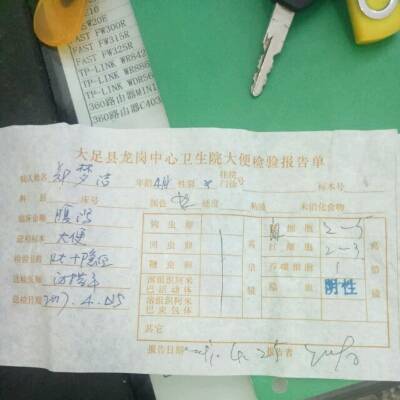 216
SW20E
FAST FW300R
FAST FW315R
FAST FW325R
TP-LINK WR84
TP-LINK WR886
TP-LINK WDR56
360路由器MINI
360路由器C403
大足县龙岗中心卫生院大便检验报告单
病人姓名 梦洁 年龄 4月 性别 女 住院 门诊 号 标本号
科 床号 颜色 硬度 粘液 未消化食物
临床诊断 腹泻
送检标本 大便
检验目的
送检医师
送检日期 2017.4.25
钩虫卵 高 白细胞 2-5 高
蛔虫卵 红细胞 2-3
鞭虫卵 倍 巨噬细胞 倍
溶组织阿米巴运动体 隐血 阴性
溶组织阿米巴束包体 镜 镜
其它
报告日期 4.25 报告者